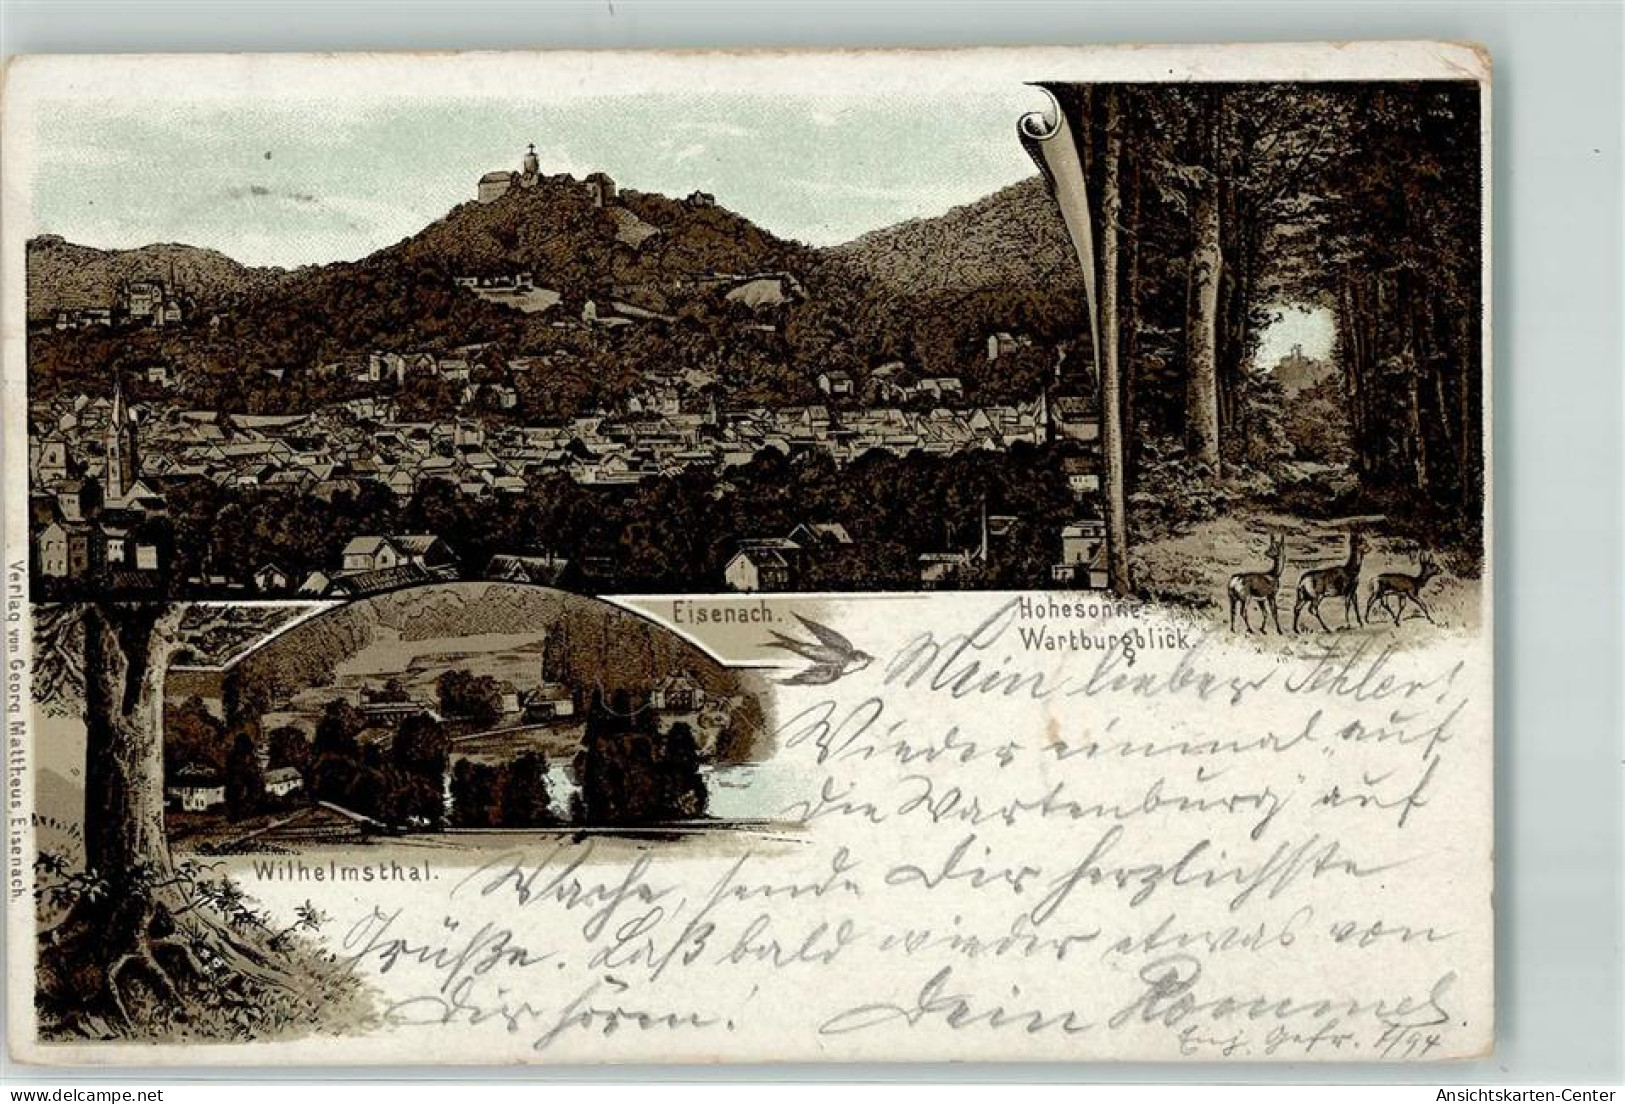 Eisenach.
Hohesonne-
Wartburgblick.
Wilhelmsthal.
Verlag von Georg Mattheus Eisenach.
Mein lieber
Wieder einmal „auf
die Wartenburg" auf
Wache, sende Dir herzlichste
Grüße. Laß bald wieder etwas von
Dir hören! Dein Rommel.
Einj. Gefr. 7/94
Ansichtskarten-Center
delcampe.net